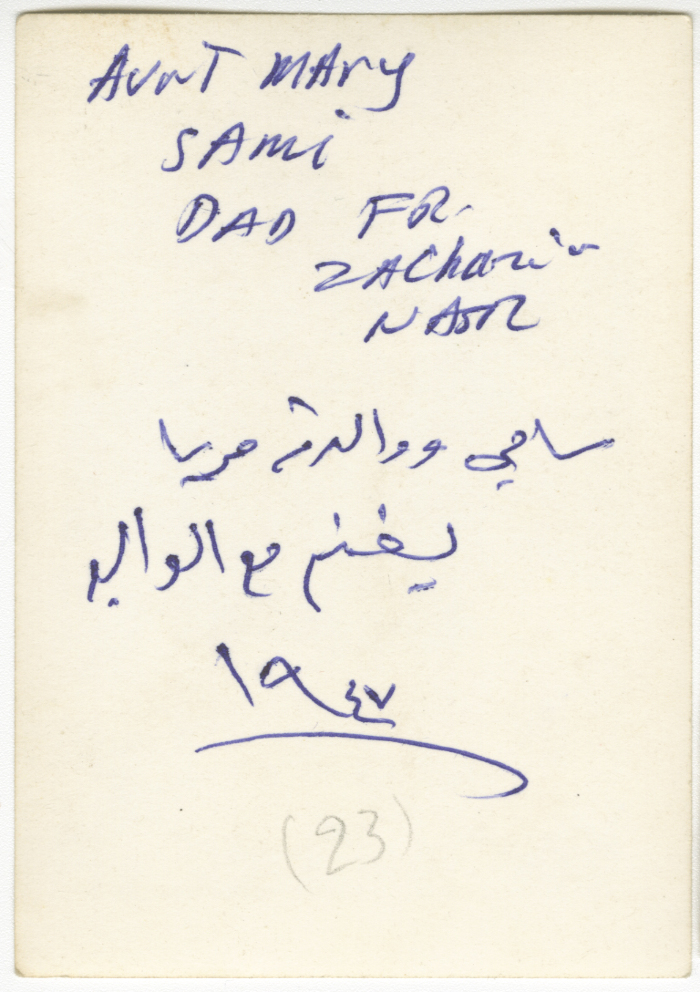 AUNT MARY
SAMI
DAD FR.
ZAChari
NASR
سامي ووالدته ماريا
يغنم مع الوالد
١٩٤٧
(23)